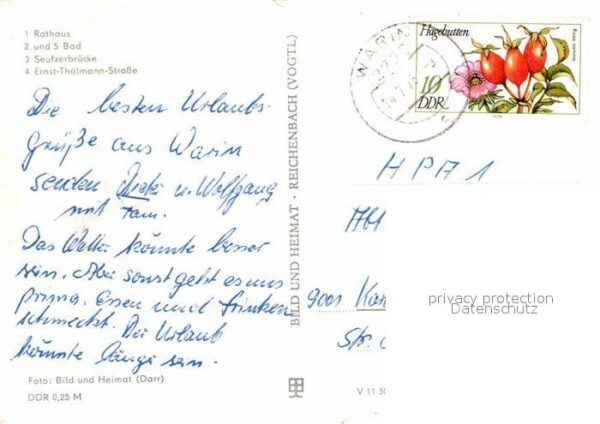 1 Rathaus
2 und 5 Bad
3 Seufzerbrücke
4 Ernst-Thälmann-Straße
Die besten Urlaubs-
grüße aus Warin
senden u. Wolfgang
mit Fam.
Das Wetter könnte besser
sein. Aber sonst geht es uns
prima. Essen und Trinken
schmeckt. Der Urlaub
könnte länger sein.
Foto: Bild und Heimat (Darr)
DDR 0,25 M
BILD UND HEIMAT · REICHENBACH (VOGTL)
V 11 50
WARIN
Hagebutten
Rosa canina
10
DDR
HPA 1
Abt
9001 Kar
Str.
privacy protection
Datenschutz